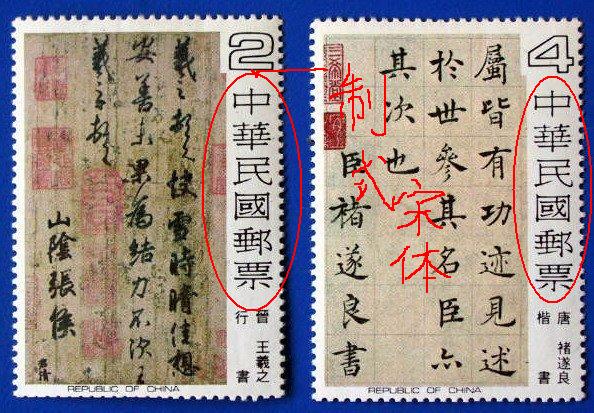 2
中華民國郵票
晉 王羲之
行書
羲之頓首快雪時晴佳想
安善未果為結力不次王
羲之頓首
山陰張侯
君倩
REPUBLIC OF CHINA
制式
宋体
4
中華民國郵票
唐 褚遂良
楷書
屬皆有功迹見述
於世參其名臣六
其次也
臣褚遂良書
REPUBLIC OF CHINA